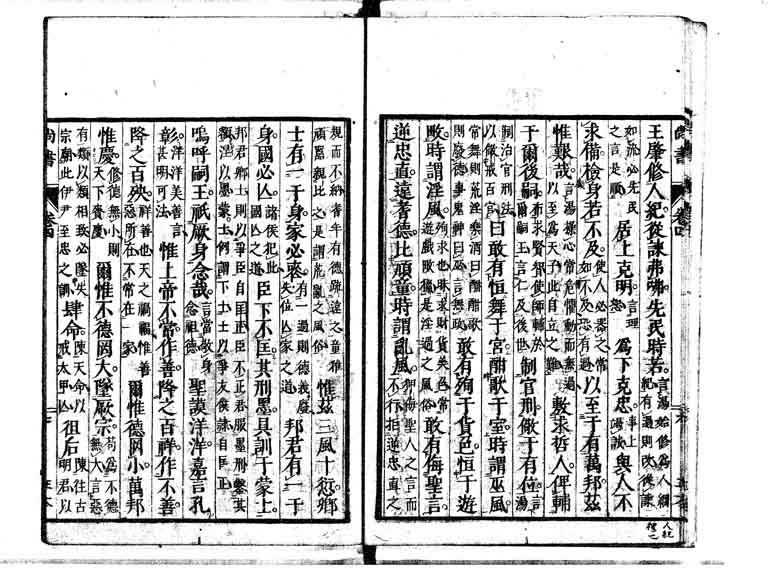 尚書 卷四
王肇修人紀從諫弗咈先民時若言湯始修為人綱紀有過則改從諫
如流必先民之言是順居上克明言理恕為下克忠事上竭誠與人不
求備檢身若不及使人必器之常如不及恐有過以至于有萬邦茲
惟艱哉言湯操心常危懼動而無過以至為天子此自立之難敷求哲人俾輔
于爾後嗣布求賢智使師輔於爾嗣王言仁及後世制官刑儆于有位言湯
制治官刑法以儆戒百官曰敢有恒舞于宮酣歌于室時謂巫風
常舞則荒淫樂酒曰酣酣歌則廢德事鬼神曰巫言無政敢有殉于貨色恒于遊
畋時謂淫風殉求也昧求財貨美色常遊戲畋獵是淫過之風俗敢有侮聖言
逆忠直遠耆德比頑童時謂亂風狎侮聖人之言而不行拒逆忠直之
規而不納耆年有德疏遠之童稚頑嚚親比之是謂荒亂之風俗惟茲三風十愆卿
士有一于身家必喪有一過則德義廢失位亡家之道邦君有一于
身國必亡諸侯犯此國亡之道臣下不匡其刑墨具訓于蒙士
邦君卿士則以爭臣自匡正臣不正君服墨刑鑿其頟涅以墨蒙士例謂下士士以爭友僕隸自匡正
嗚呼嗣王祗厥身念哉言當敬身念祖德聖謨洋洋嘉言孔
彰洋洋美善言甚明可法惟上帝不常作善降之百祥作不善
降之百殃祥善也天之禍福惟善惡所在不常在一家爾惟德罔小萬邦
惟慶修德無小則天下賚慶爾惟不德罔大墜厥宗苟為不德無大言惡
有類以類相致必墜失宗廟此伊尹至忠之訓肆命陳天命以戒大甲亡徂后陳往古明君以
尚書 卷四